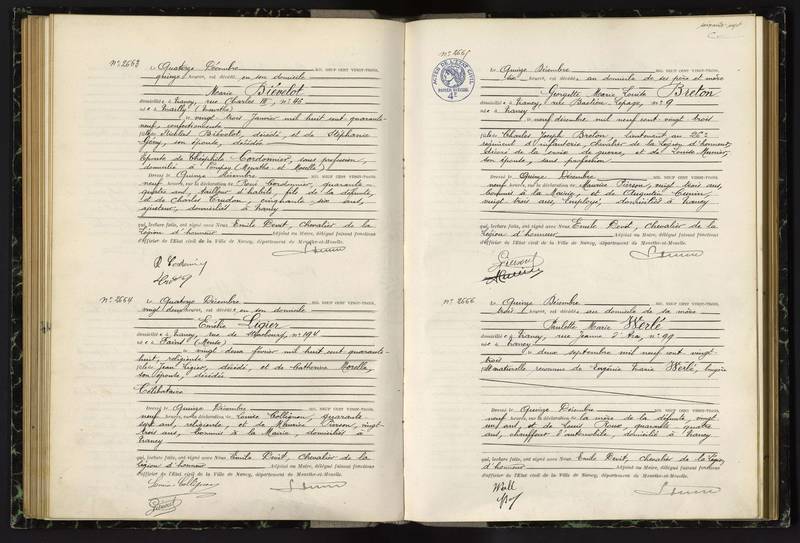 N° 2663
Le Quatorze Décembre MIL NEUF CENT VINGT-TROIS,
quinze heures, est décédée en son domicile
Marie Biévelot
domiciliée à Nancy, rue Charles III, n° 46
née à
le vingt trois Janvier mil huit cent quarante-
neuf, confectionneuse
fille de Nicolas Biévelot, décédé, et de Stéphanie
Gény, son épouse, décédée
Epouse de Théophile Cordonnier, sans profession,
domicilié à (Meurthe et Moselle)
Dressé le Quinze Décembre
neuf heures, sur la déclaration de René Cordonnier, quarante-
quatre ans, tailleur d'habits, fils de la défunte,
et de Charles cinquante six ans,
domiciliés à Nancy
qui, lecture faite, ont signé avec Nous Emile Devit, Chevalier de la
Légion d'honneur Adjoint au Maire, délégué faisant fonctions
d'officier de l'Etat civil de la Ville de Nancy, département de Meurthe-et-Moselle.
N° 2664
Le Quatorze Décembre MIL NEUF CENT VINGT-TROIS,
vingt deux heures, est décédée en son domicile
Emilie Ligier
domiciliée à Nancy, rue de Strasbourg, n° 194
née à
le vingt deux février mil huit cent quarante-
huit, religieuse
fille de Jean Ligier, décédé, et de Catherine
son épouse, décédée
Célibataire
Dressé le Quinze Décembre
neuf heures, sur la déclaration de Louise Collignon, quarante
sept ans, religieuse, et de Maurice Pierson, vingt-
trois ans, Commis à la Mairie, domiciliés à
Nancy
qui, lecture faite, ont signé avec Nous Emile Devit, Chevalier de la
Légion d'honneur Adjoint au Maire, délégué faisant fonctions
d'officier de l'Etat civil de la Ville de Nancy, département de Meurthe-et-Moselle.
Louise Collignon
N° 2665
ACTES DE L'ÉTAT CIVIL
PAPIER SPÉCIAL
Le Quinze Décembre MIL NEUF CENT VINGT-TROIS,
heures, est décédée au domicile de ses père et mère
Georgette Marie Louise Breton
domiciliée à Nancy, rue Bastien-Lepage, n° 9
née à Nancy
le neuf décembre mil neuf cent vingt trois
fille de Charles Joseph Breton, Lieutenant au 26e
régiment d'Infanterie, chevalier de la Légion d'honneur,
décoré de la croix de guerre, et de Louise
son épouse, sans profession
Dressé le Quinze Décembre
neuf heures, sur la déclaration de Maurice Pierson, vingt trois ans,
Commis à la Mairie, et de
vingt trois ans, employé, domiciliés à Nancy
qui, lecture faite, ont signé avec Nous Emile Devit, Chevalier de la
Légion d'honneur Adjoint au Maire, délégué faisant fonctions
d'officier de l'Etat civil de la Ville de Nancy, département de Meurthe-et-Moselle.
N° 2666
Le Quinze Décembre MIL NEUF CENT VINGT-TROIS,
trois heures, est décédée au domicile de sa mère
Paulette Marie Werlé
domiciliée à Nancy, rue Jeanne d'Arc, n° 99
née à Nancy
le deux septembre mil neuf cent vingt-
trois
fille naturelle reconnue de Eugénie Marie Werlé,
Dressé le Quinze Décembre
neuf heures, sur la déclaration de la mère de la défunte, vingt-
un ans, et de Louis Roux, quarante quatre
ans, chauffeur d'automobile, domicilié à Nancy
qui, lecture faite, ont signé avec Nous Emile Devit, chevalier de la Légion
d'honneur Adjoint au Maire, délégué faisant fonctions
d'officier de l'Etat civil de la Ville de Nancy, département de Meurthe-et-Moselle.